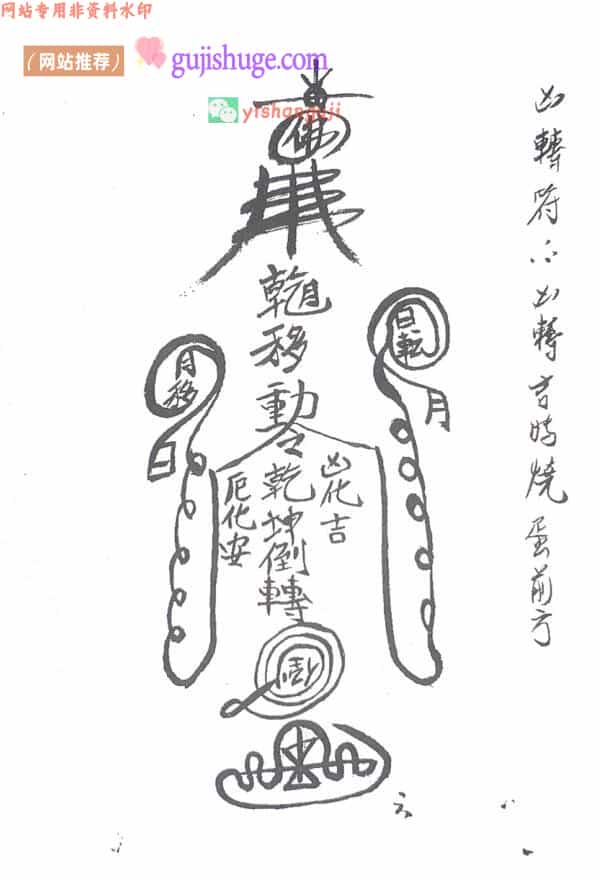 网站专用非资料水印
(网站推荐)
gujishuge.com
yishanguji
佛
月移動
日転
月
月移
日
令乾坤倒轉
凶化吉
厄化安
凶轉符
凶轉吉時燒